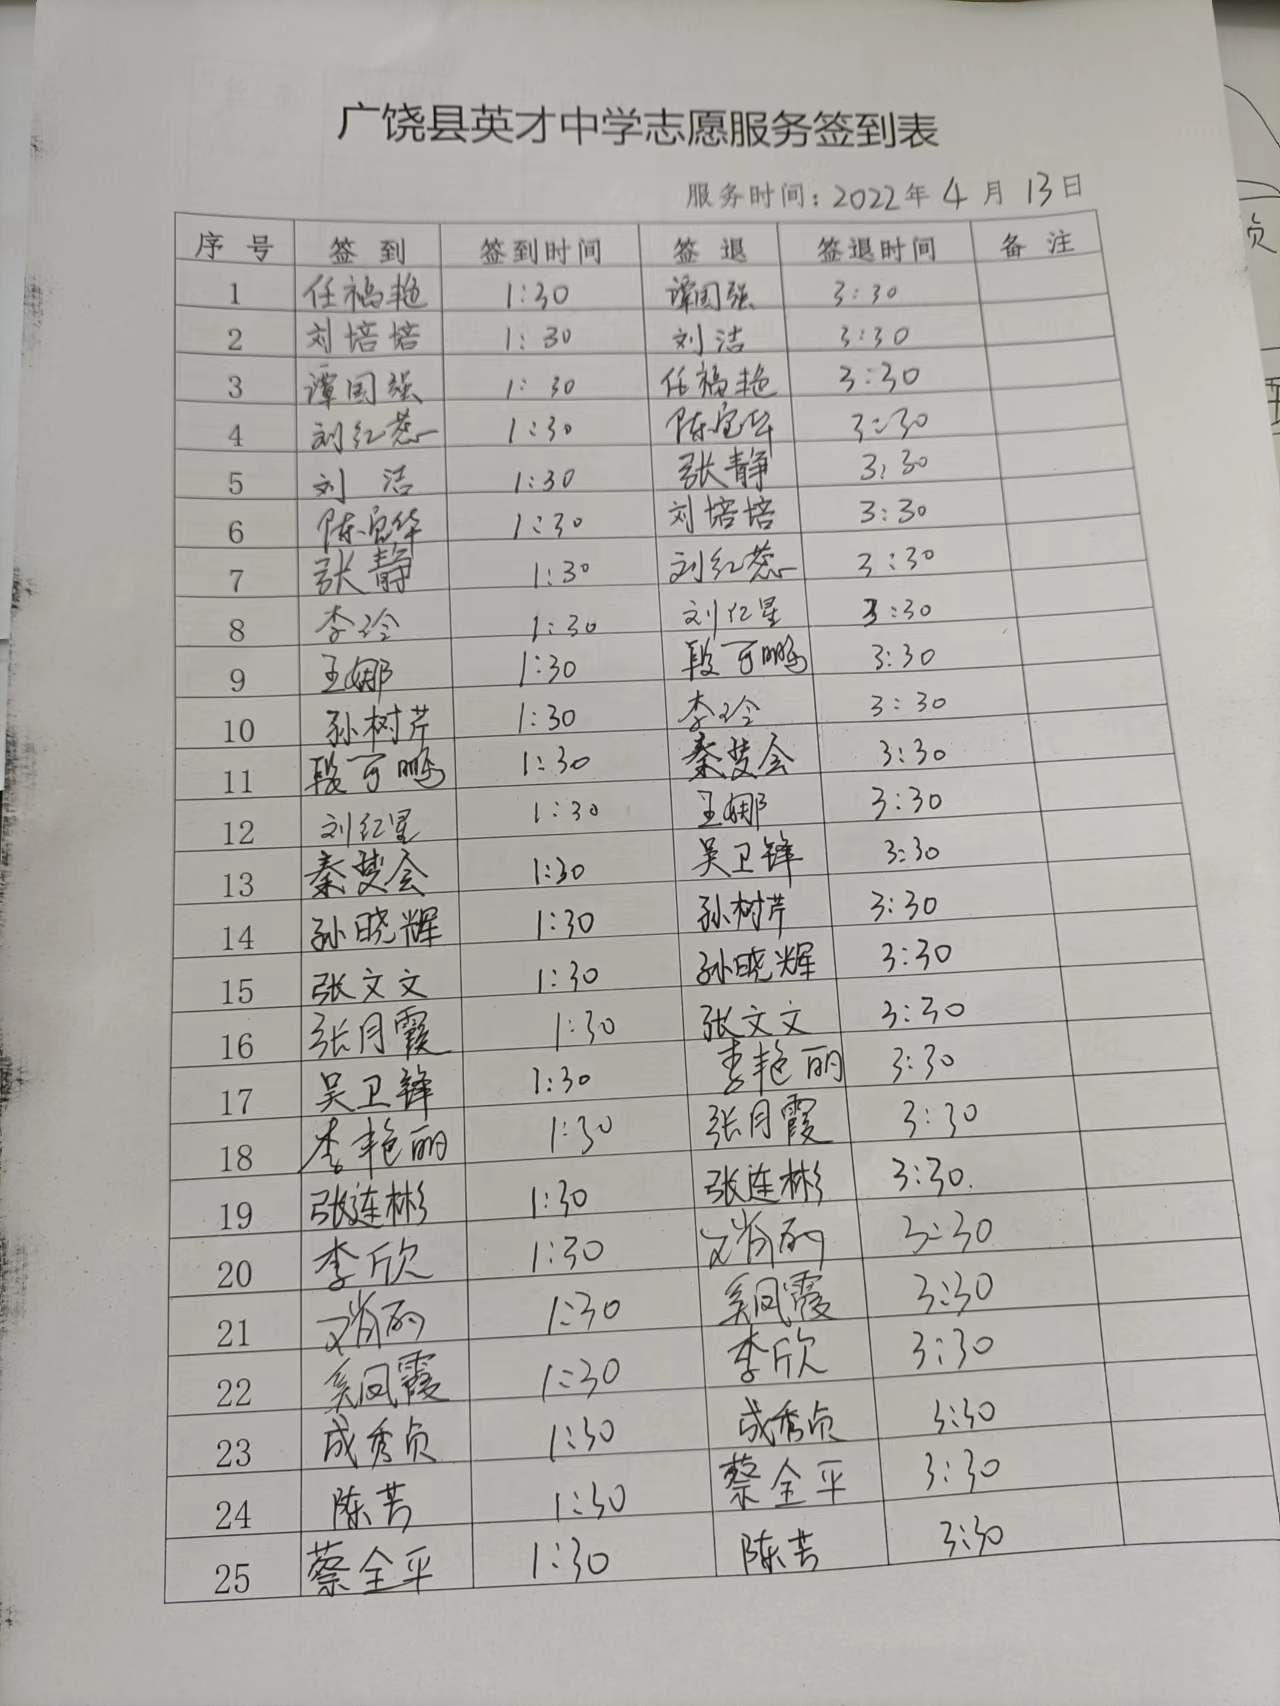 广饶县英才中学志愿服务签到表
服务时间：2022年 4 月 13日
序 号 签 到 签到时间 签 退 签退时间 备 注
1 任福艳 1:30 谭国强 3:30
2 刘培培 1:30 刘洁 3:30
3 谭国强 1:30 任福艳 3:30
4 刘红蕊 1:30 陈宝华 3:30
5 刘 洁 1:30 张静 3:30
6 陈宝华 1:30 刘培培 3:30
7 张静 1:30 刘红蕊 3:30
8 李玲 1:30 刘红星 3:30
9 王娜 1:30 段可鹏 3:30
10 孙树芹 1:30 李玲 3:30
11 段可鹏 1:30 秦梦会 3:30
12 刘红星 1:30 王娜 3:30
13 秦梦会 1:30 吴卫锋 3:30
14 孙晓辉 1:30 孙树芹 3:30
15 张文文 1:30 孙晓辉 3:30
16 张月霞 1:30 张文文 3:30
17 吴卫锋 1:30 李艳丽 3:30
18 李艳丽 1:30 张月霞 3:30
19 张连彬 1:30 张连彬 3:30.
20 李欣 1:30 3:30
21 1:30 凤霞 3:30
22 凤霞 1:30 李欣 3:30
23 成秀贞 1:30 成秀贞 3:30
24 陈芳 1:30 蔡全平 3:30
25 蔡全平 1:30 陈芳 3:30
员